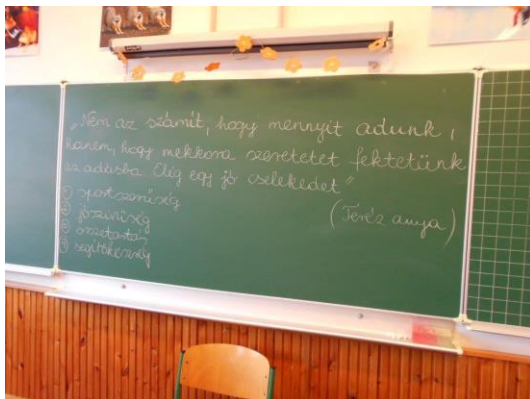 „Nem az számít, hogy mennyit adunk,
hanem, hogy mekkora szeretetet fektetünk
az adásba. Elég egy jó cselekedet"
(Teréz anya)
① sportszerűség
② jószívűség
③ összetartás
④ segítőkészség